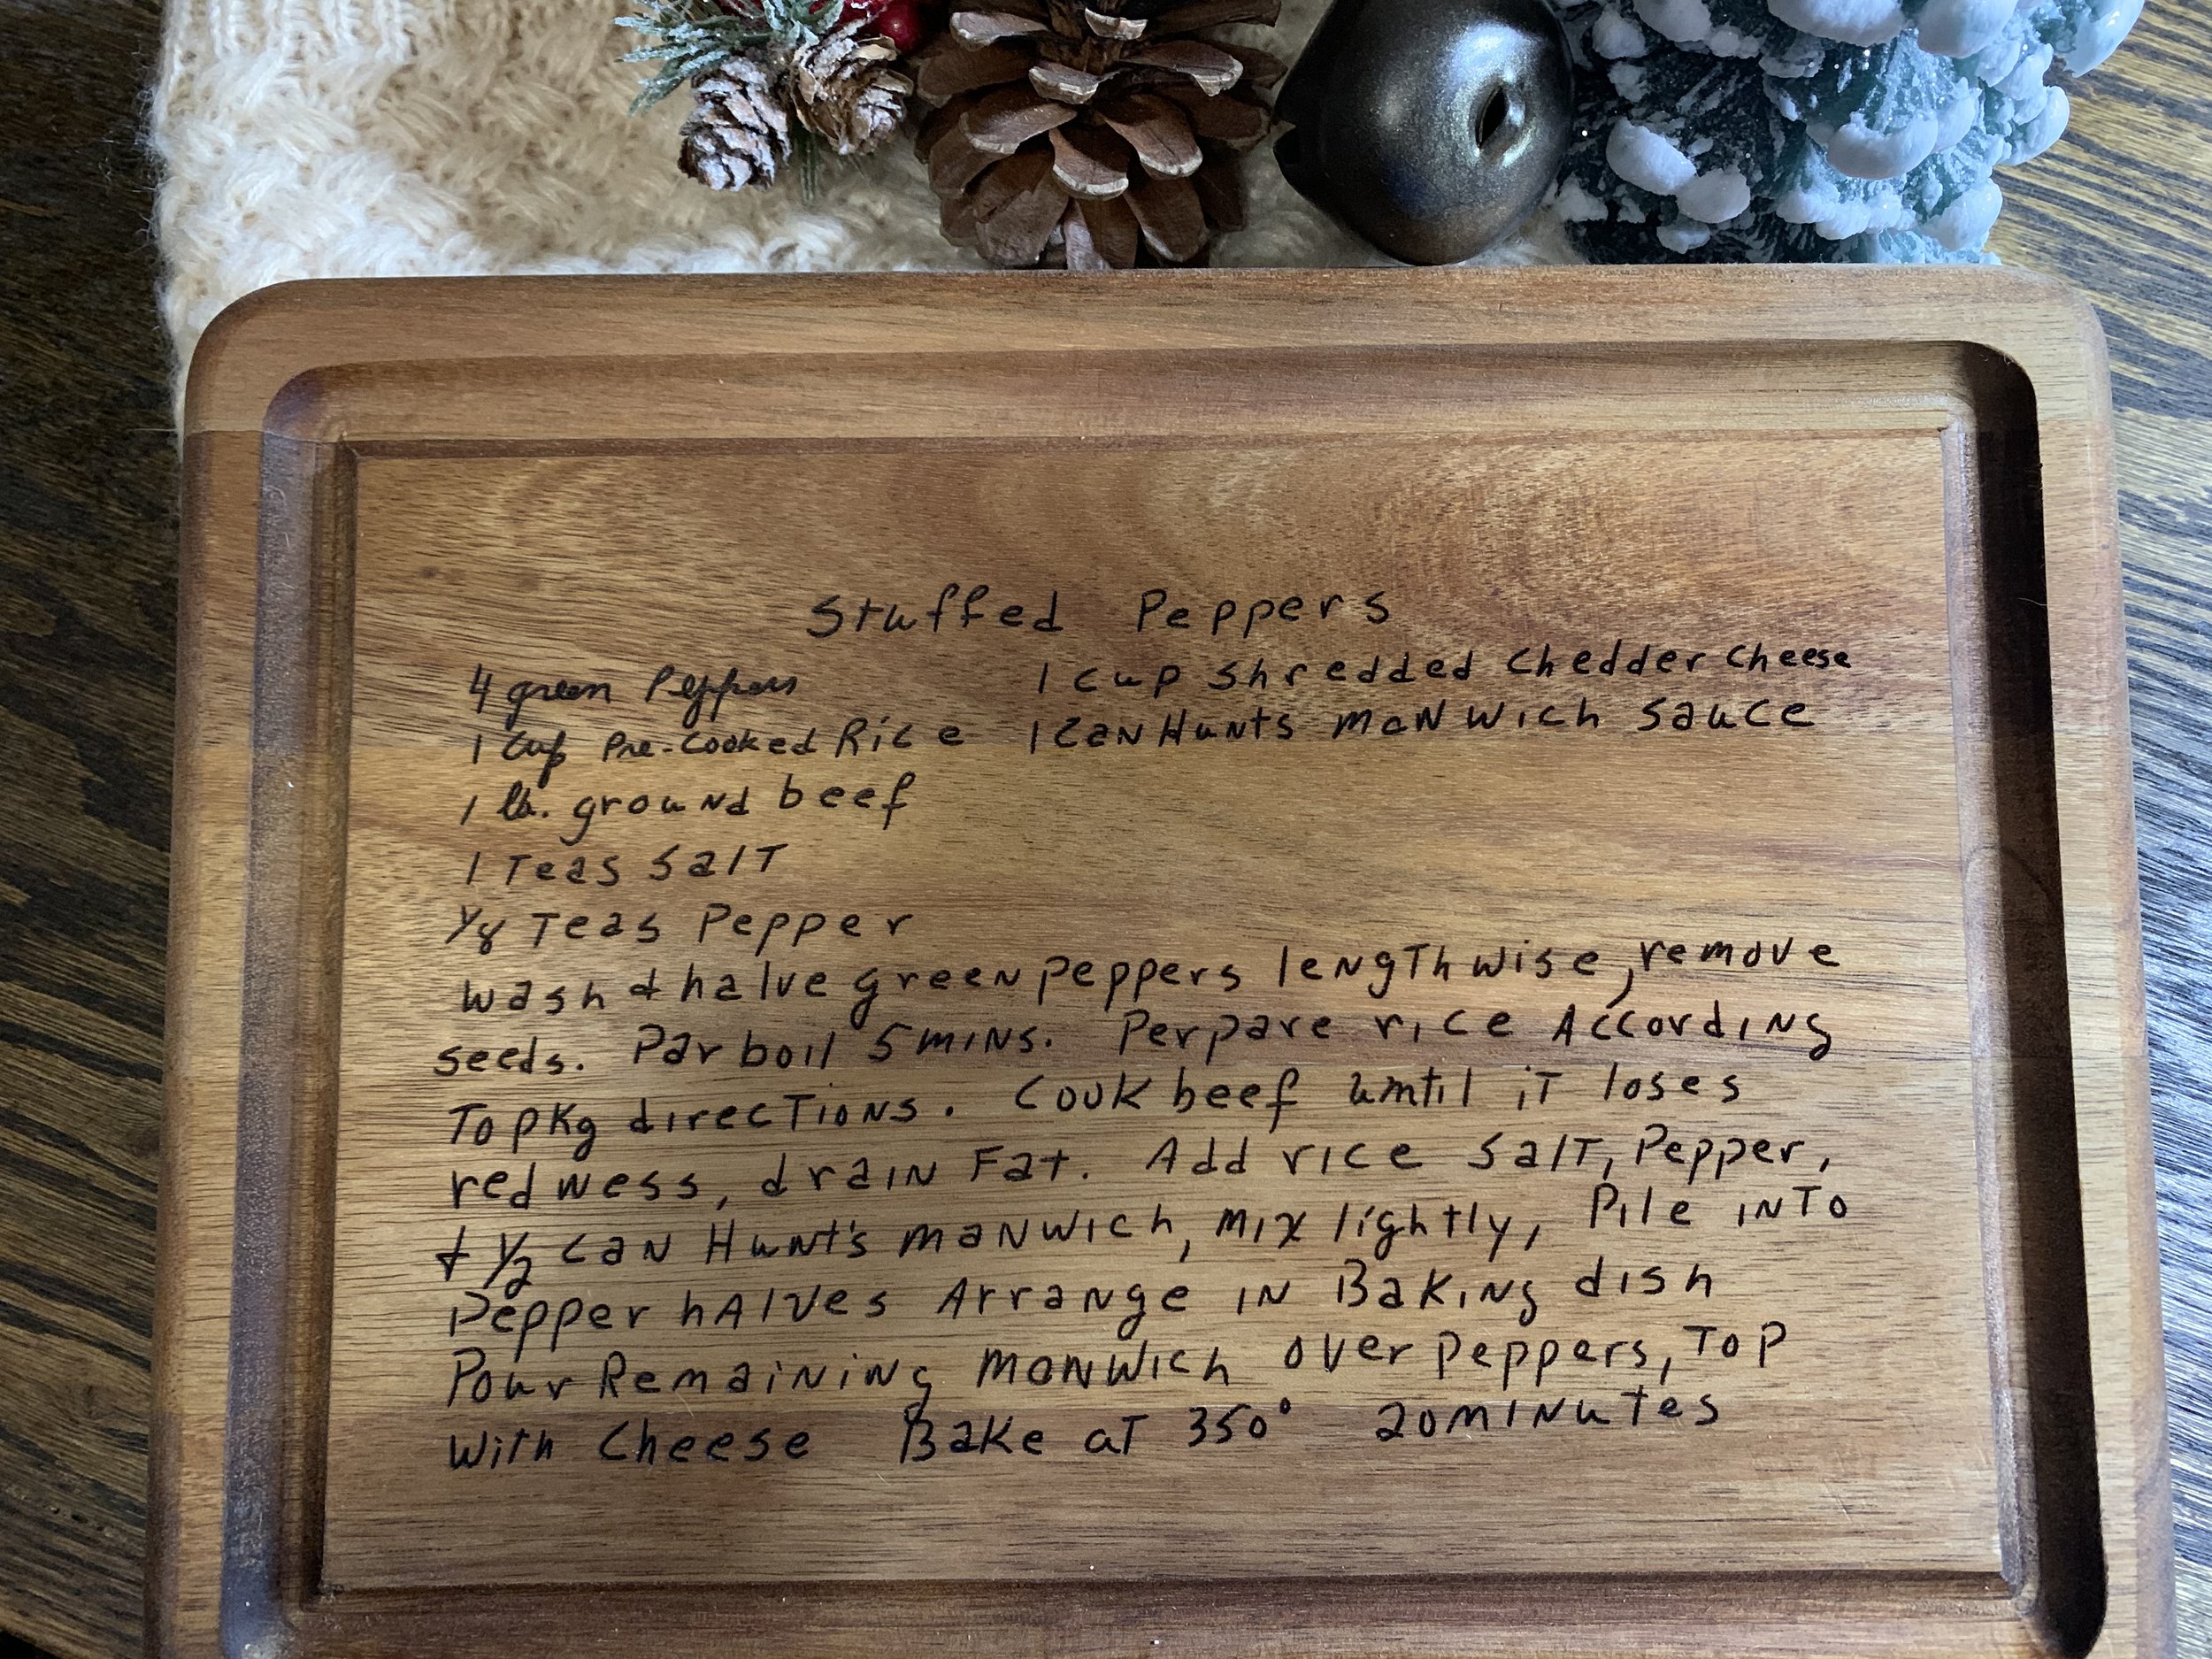 Stuffed Peppers
4 green Peppers 1 cup shredded Chedder Cheese
1 Cup Pre-Cooked Rice 1 Can Hunts manwich Sauce
1 lb. ground beef
1 Teas Salt
1/8 Teas Pepper
Wash & halve green peppers lengthwise, remove
seeds. Par boil 5 mins. Perpare rice According
To pkg directions. Cook beef until it loses
redness, drain Fat. Add rice Salt, Pepper,
& 1/2 can Hunt's manwich, mix lightly, Pile into
Pepper halves Arrange in Baking dish
Pour Remaining manwich over peppers, Top
With Cheese Bake at 350° 20 minutes